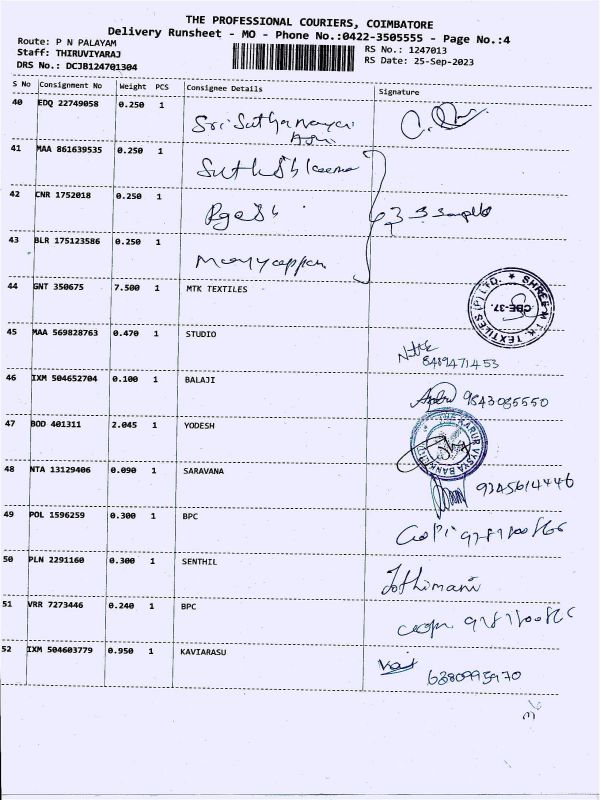 THE PROFESSIONAL COURIERS, COIMBATORE
Delivery Runsheet - MO - Phone No.:0422-3505555 - Page No.:4
Route: P N PALAYAM RS No.: 1247013
Staff: THIRUVIYARAJ RS Date: 25-Sep-2023
DRS No.: DCJB124701304
S No Consignment No Weight PCS Consignee Details Signature
40 EDQ 22749058 0.250 1
41 MAA 861639535 0.250 1
42 CNR 1752018 0.250 1
43 BLR 175123586 0.250 1
44 GNT 350675 7.500 1 MTK TEXTILES
SHREE M.T.K. TEXTILES (P) LTD. CBE-37.
45 MAA 569828763 0.470 1 STUDIO
8489471453
46 IXM 504652704 0.100 1 BALAJI
9843085550
47 BOD 401311 2.045 1 YODESH
THE KARUR VYSYA BANK LTD
48 NTA 13129406 0.090 1 SARAVANA
9345614446
49 POL 1596259 0.300 1 BPC
50 PLN 2291160 0.300 1 SENTHIL
Jothimani
51 VRR 7273446 0.240 1 BPC
52 IXM 504603779 0.950 1 KAVIARASU
6380995970